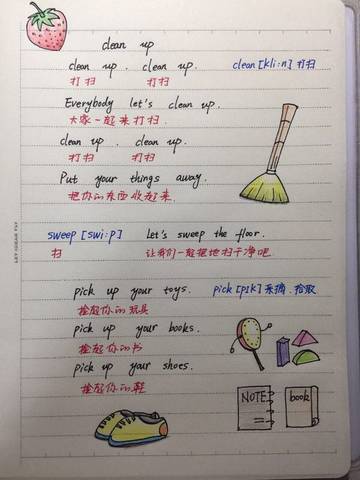 clean up
clean up. clean up. clean [kli:n] 打扫
打扫 打扫
Everybody let's clean up.
大家一起来打扫.
clean up. clean up.
打扫 打扫
Put your things away.
把你的东西收起来.
sweep [swi:p] Let's sweep the floor.
扫 让我们一起把地扫干净吧
pick up your toys. pick [pɪk] 采摘.拾取
捡起你的玩具
pick up your books.
捡起你的书
pick up your shoes.
捡起你的鞋
NOTE book
LET IDEAS FLY